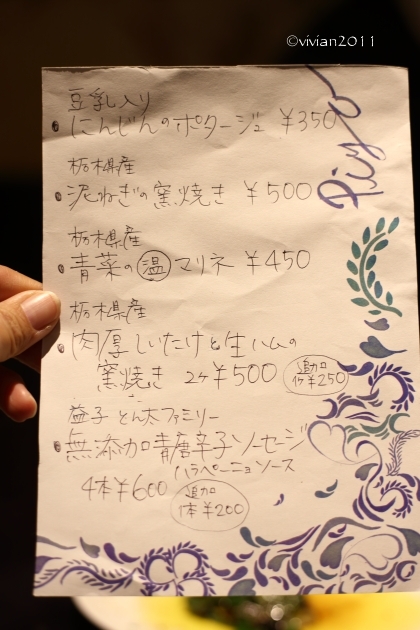 ©vivian2011
豆乳入り
・にんじんのポタージュ ¥350
栃木県産
・泥ねぎの窯焼き ¥500
栃木県産
・青菜の温マリネ ¥450
栃木県産
・肉厚しいたけと生ハムの
窯焼き 2ケ ¥500
追加
1ケ¥250
益子 とん太ファミリー
・無添加青唐辛子ソーセージ
ハラペーニョソース
4本¥600
追加
1本¥200